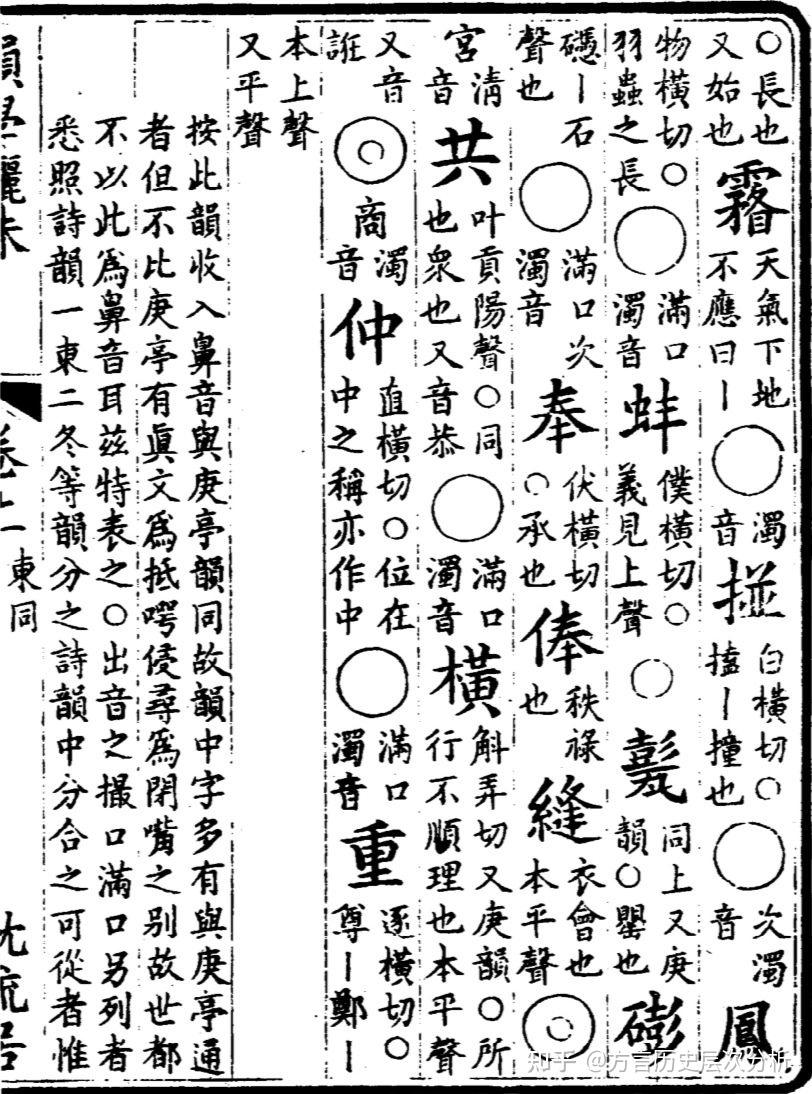 ○長也又始也霿天氣下地不應曰丨○濁音掽白橫切○搕丨撞也○次濁音鳳
物橫切○羽蟲之長○滿口濁音蚌僕橫切○義見上聲○甏同上又庚韻○甖也磞
磞丨石聲也○滿口次濁音奉伏橫切○承也俸秩祿也縫衣會也本平聲◎
宮清音共叶貢陽聲○同也衆也又音恭○滿口濁音橫斛弄切又庚韻○所行不順理也本平聲
又音誑◎商濁音仲直橫切○位在中之稱亦作中○滿口濁音重逐橫切○尊丨鄭丨
本上聲又平聲
按此韻收入鼻音與庚亭韻同故韻中字多有與庚亭通
者但不比庚亭有眞文爲抵㖾侵尋爲閉嘴之別故世都
不以此爲鼻音耳茲特表之○出音之撮口滿口另列者
悉照詩韻一東二冬等韻分之詩韻中分合之可從者惟
東同
知乎 @方言历史层次分析